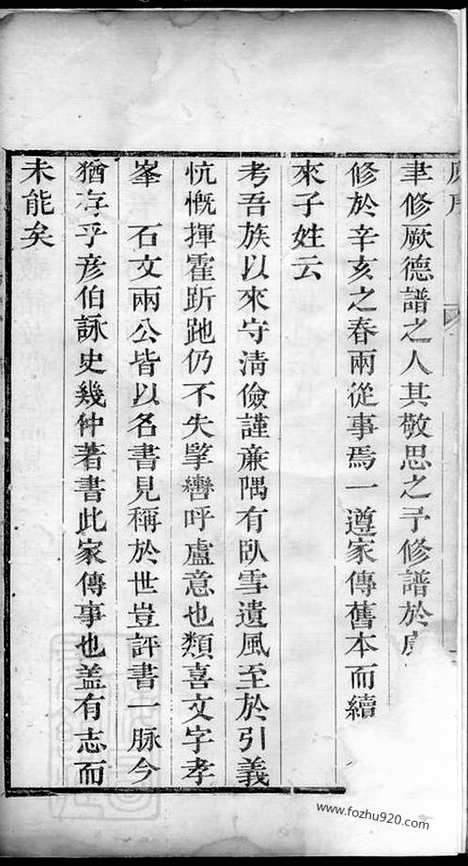 聿修厥德譜之人其敬思之予修譜於
修於辛亥之春兩從事焉一遵家傳舊本而續
來子姓云
考吾族以來守清儉謹廉隅有臥雪遺風至於引義
忼慨揮霍跅跑仍不失擘轡呼盧意也類喜文字孝
峯　石文兩公皆以名書見稱於世豈評書一脉今
猶存乎彥伯詠史幾仲著書此家傳事也盖有志而
未能矣
www.fozhu920.com